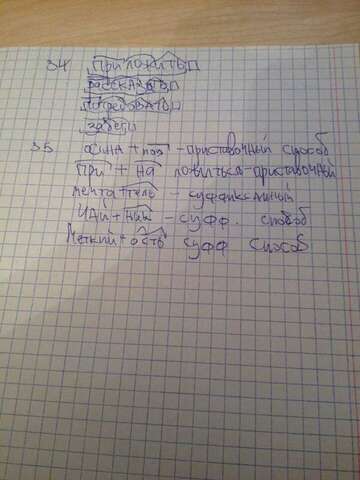 34 приложитьП
рассказатьП
забеги
35 осина + под - приставочный способ
При + На ловилька - приставочный
мечта + тель - суффиксальный
ЧАЙ + НИК - суфф. способ
Меткий + ость суфф способ